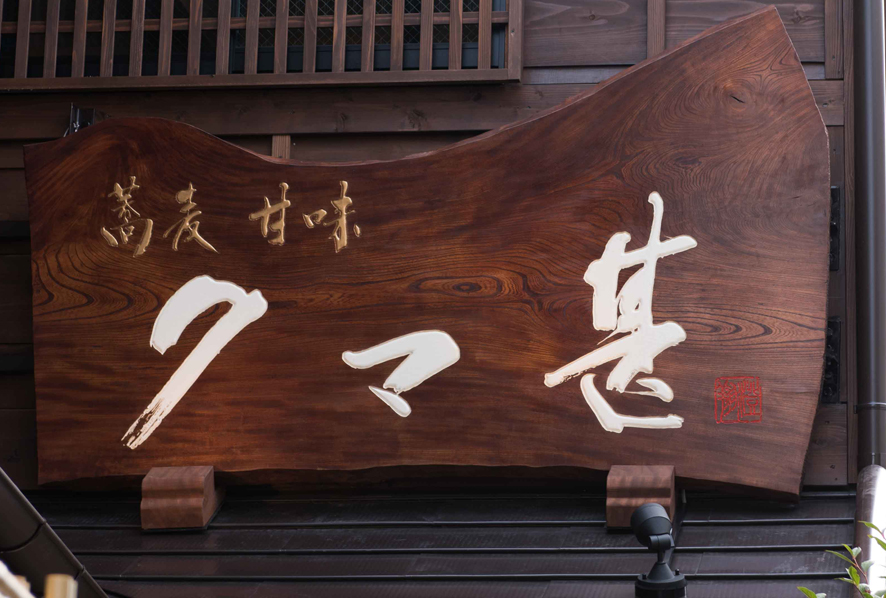 蕎麦 甘味
クマ甚